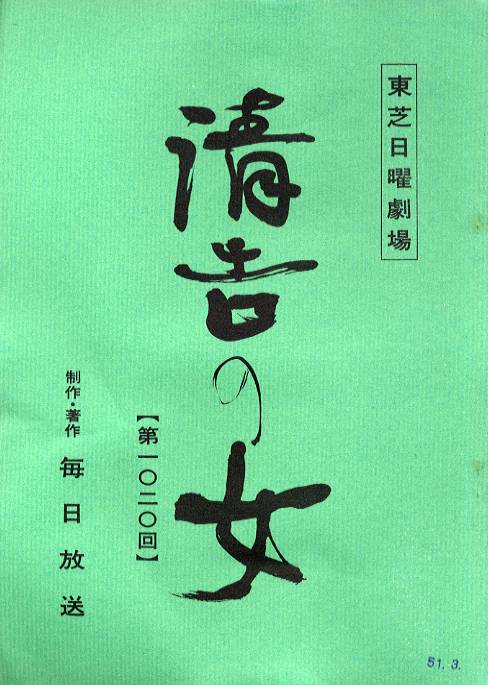 東芝日曜劇場
清吉の女
【第一〇二〇回】
制作・著作 毎日放送
51.3.